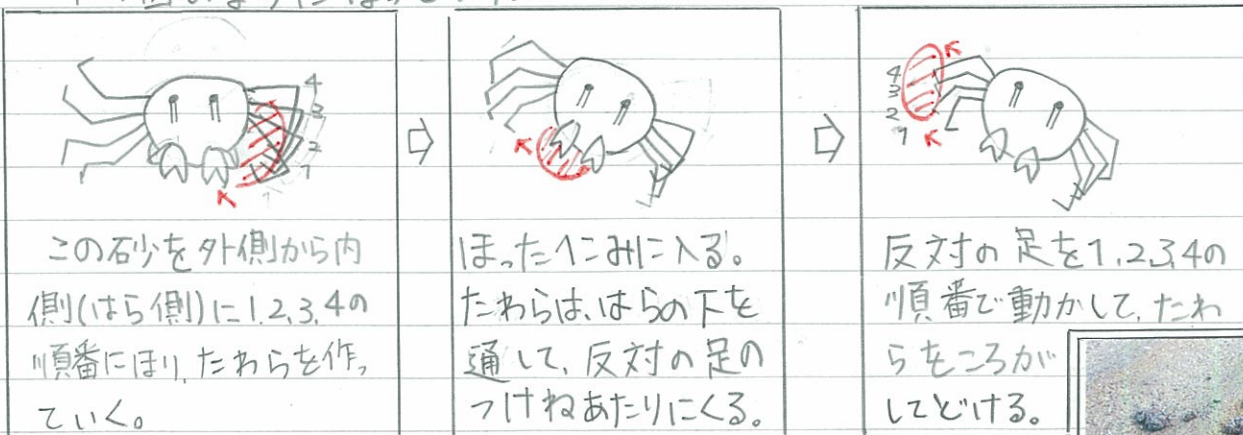 4
3
2
1
この砂を外側から内
側(はら側)に1.2.3.4の
順番にほり、たわらを作っ
ていく。
ほったへこみに入る。
たわらは、はらの下を
通して、反対の足の
つけねあたりにくる。
4
3
2
1
反対の足を1.2.3.4の
順番で動かして、たわ
らをころが
してどける。